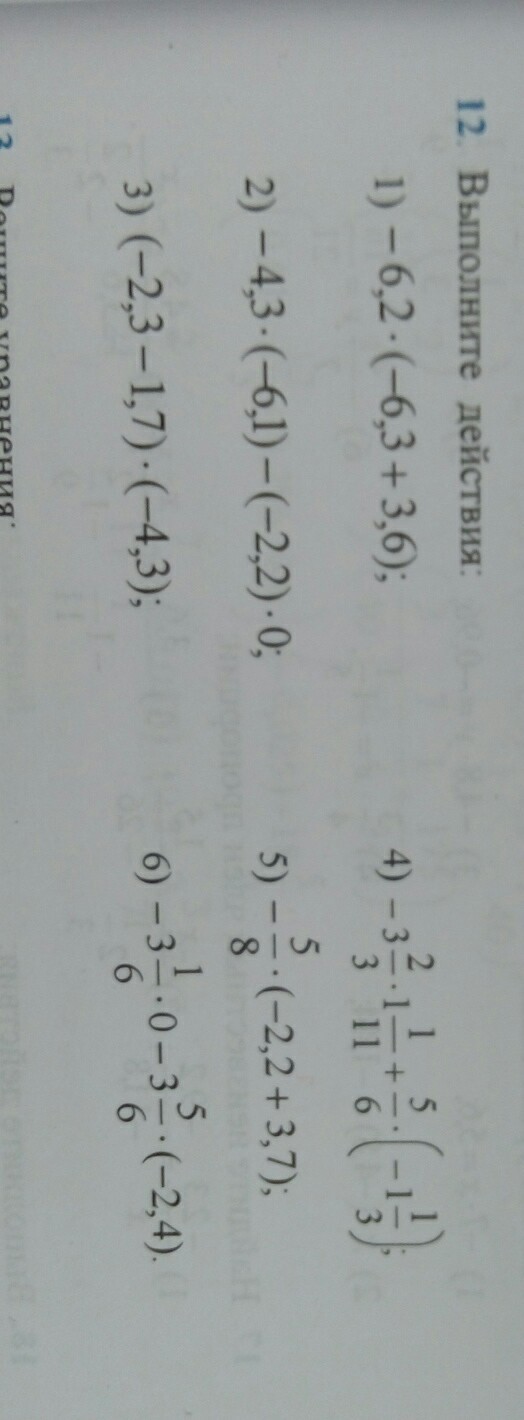 12. Выполните действия:
1) −6,2·(−6,3+3,6);
2) −4,3·(−6,1)−(−2,2)·0;
3) (−2,3−1,7)·(−4,3);
4) −3 2/3·1 1/11+5/6·(−1 1/3);
5) −5/8·(−2,2+3,7);
6) −3 1/6·0−3 5/6·(−2,4).
13. Решите уравнения: